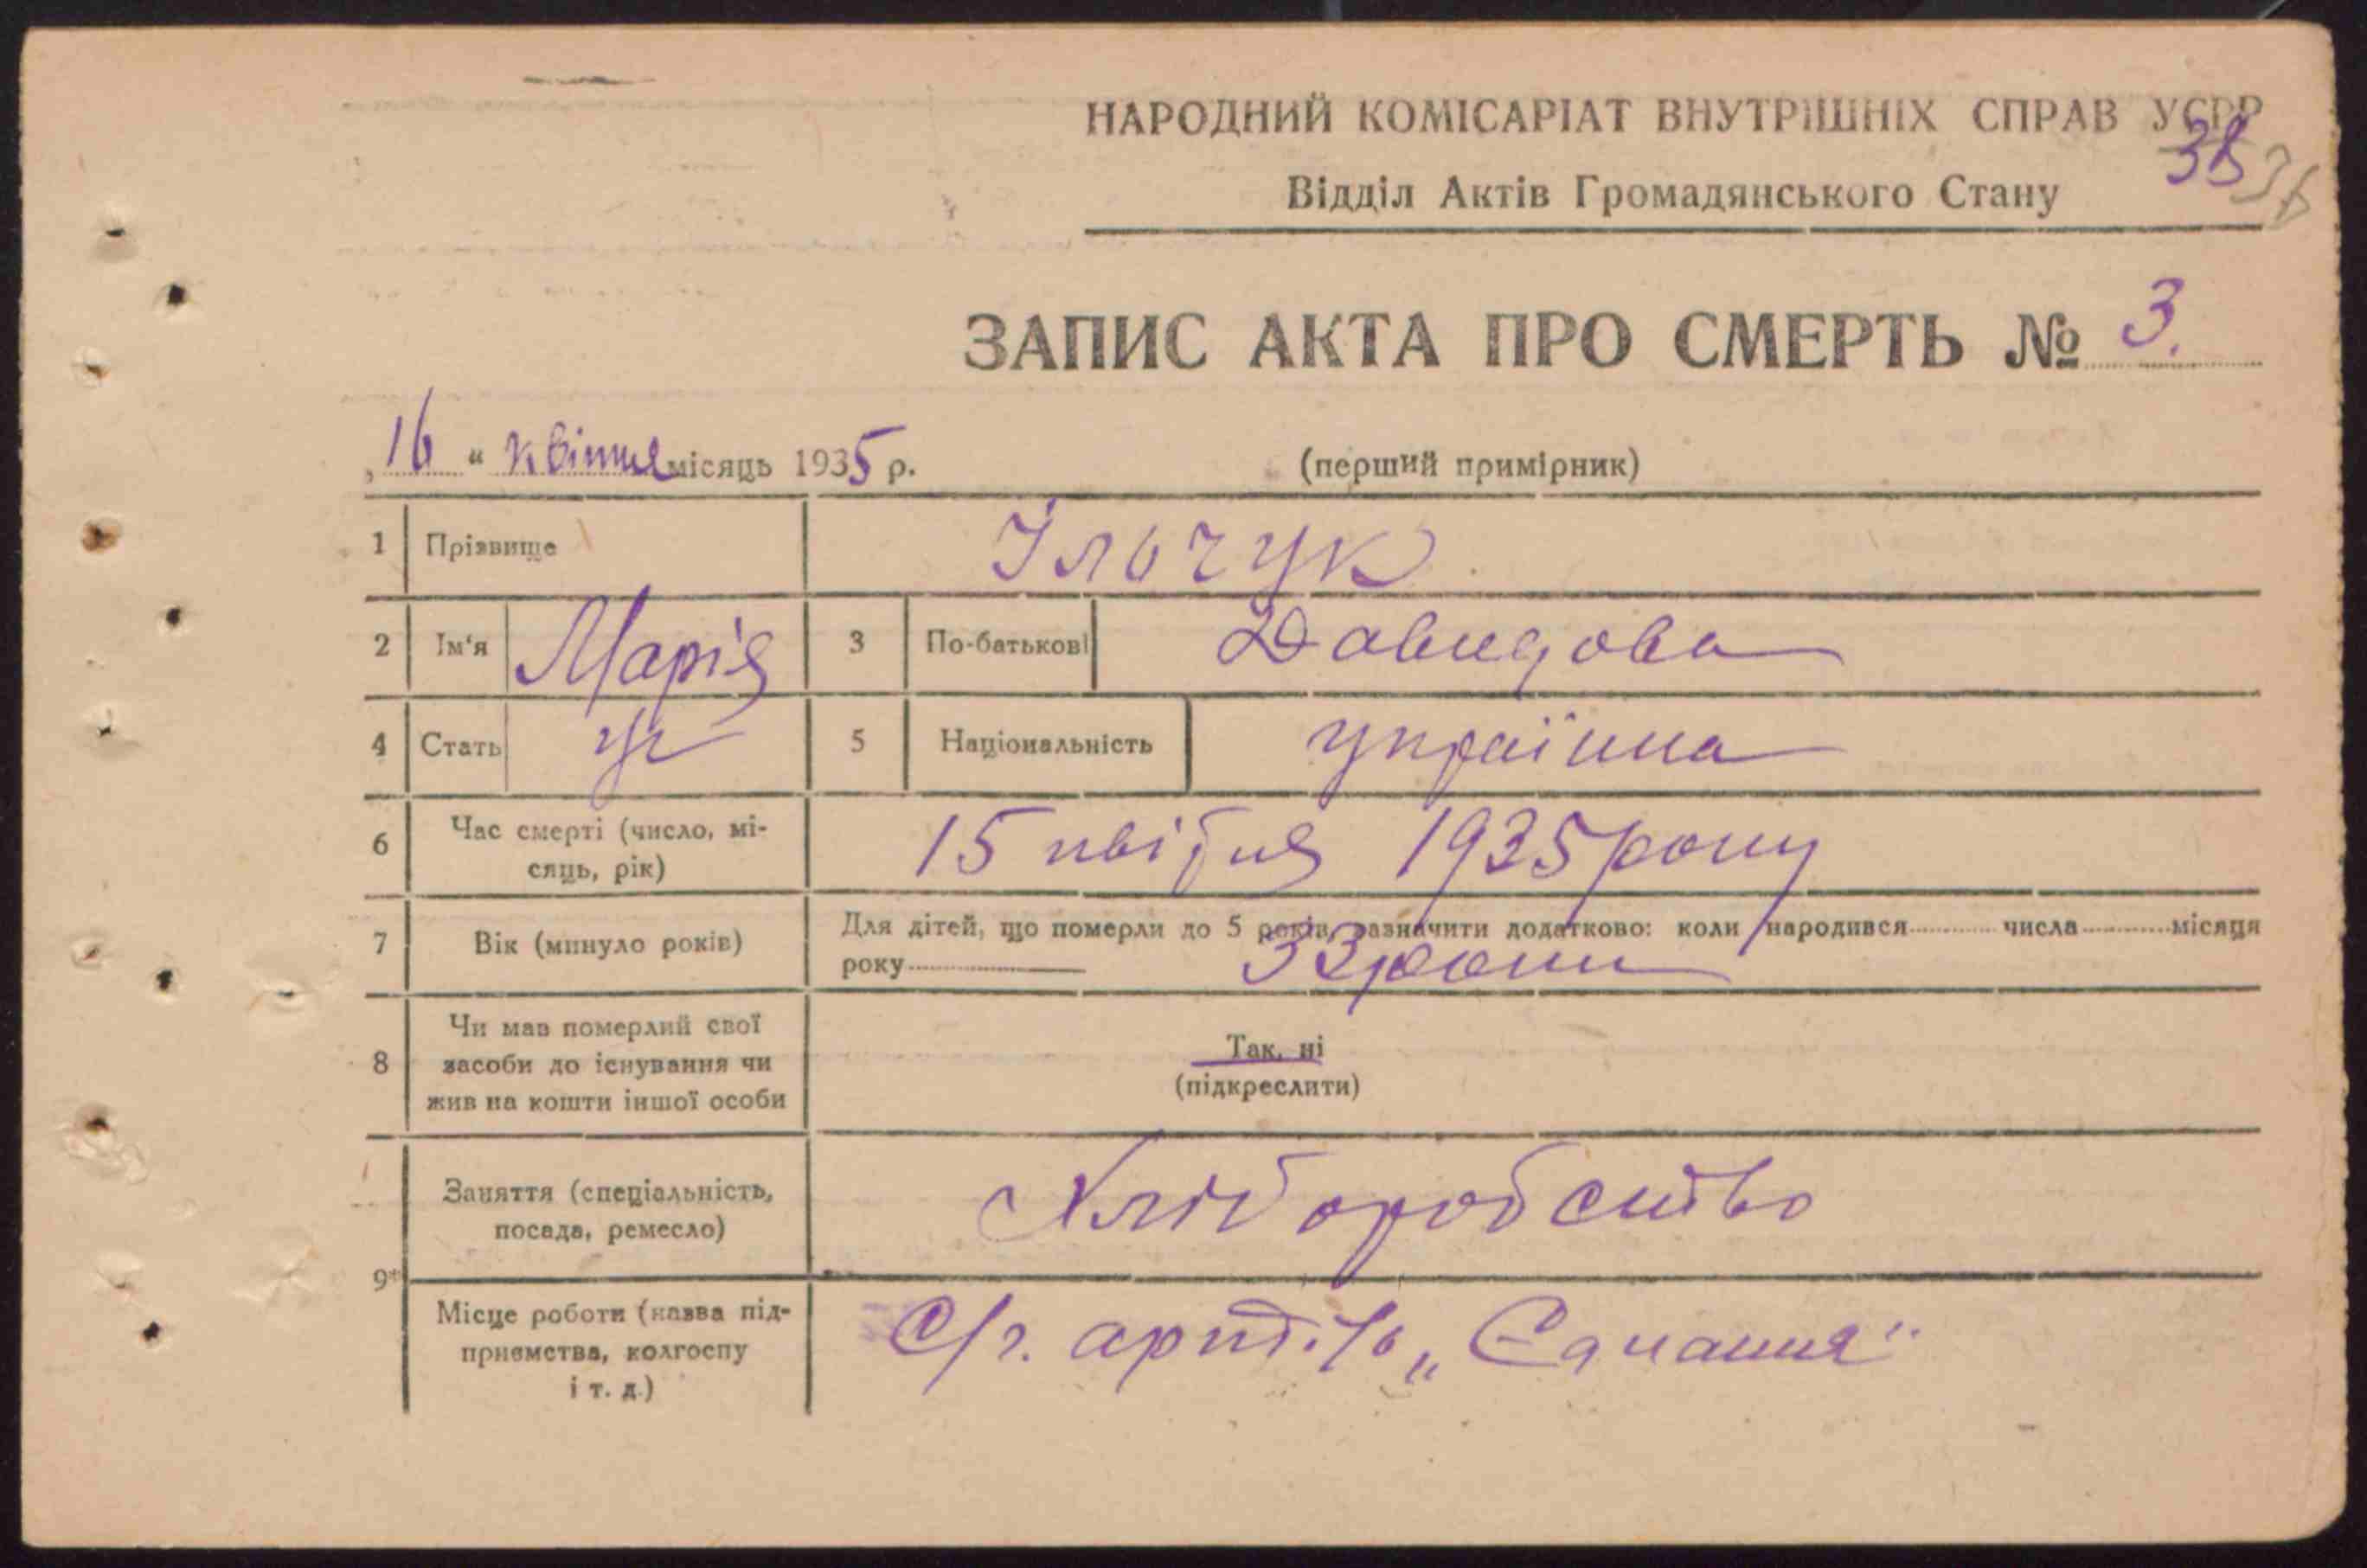 НАРОДНИЙ КОМІСАРІАТ ВНУТРІШНІХ СПРАВ УСРР
38
Відділ Актів Громадянського Стану
ЗАПИС АКТА ПРО СМЕРТЬ № 3.
„16 “ квітня місяць 1935 р.
(перший примірник)
1 Прізвище Ільчук
2 Ім‘я Марія 3 По-батькові Давидова
4 Стать ж 5 Національність українка
6 Час смерті (число, мі-
сяць, рік) 15 квітня 1935 року
7 Вік (минуло років) Для дітей, що померли до 5 років, зазначити додатково: коли народився числа місяця
року 33 роки
8 Чи мав померлий свої
засоби до існування чи
жив на кошти іншої особи
Так, ні
(підкреслити)
9* Заняття (спеціальність,
посада, ремесло) Хліборобство
Місце роботи (назва під-
приємства, колгоспу
і т. д.) С/г. артіль „Єднання"